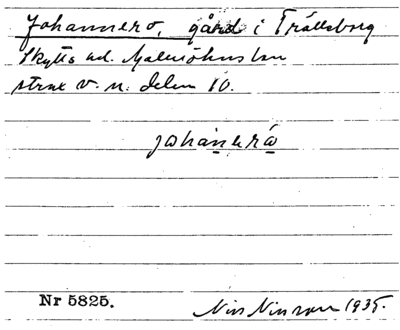 Johannero, gård i Trälleborg
Skytts hd. Malmöhus län
strax v. n. delen 10.
johàneró
Nr 5825.
Nils Nilsson 1935.